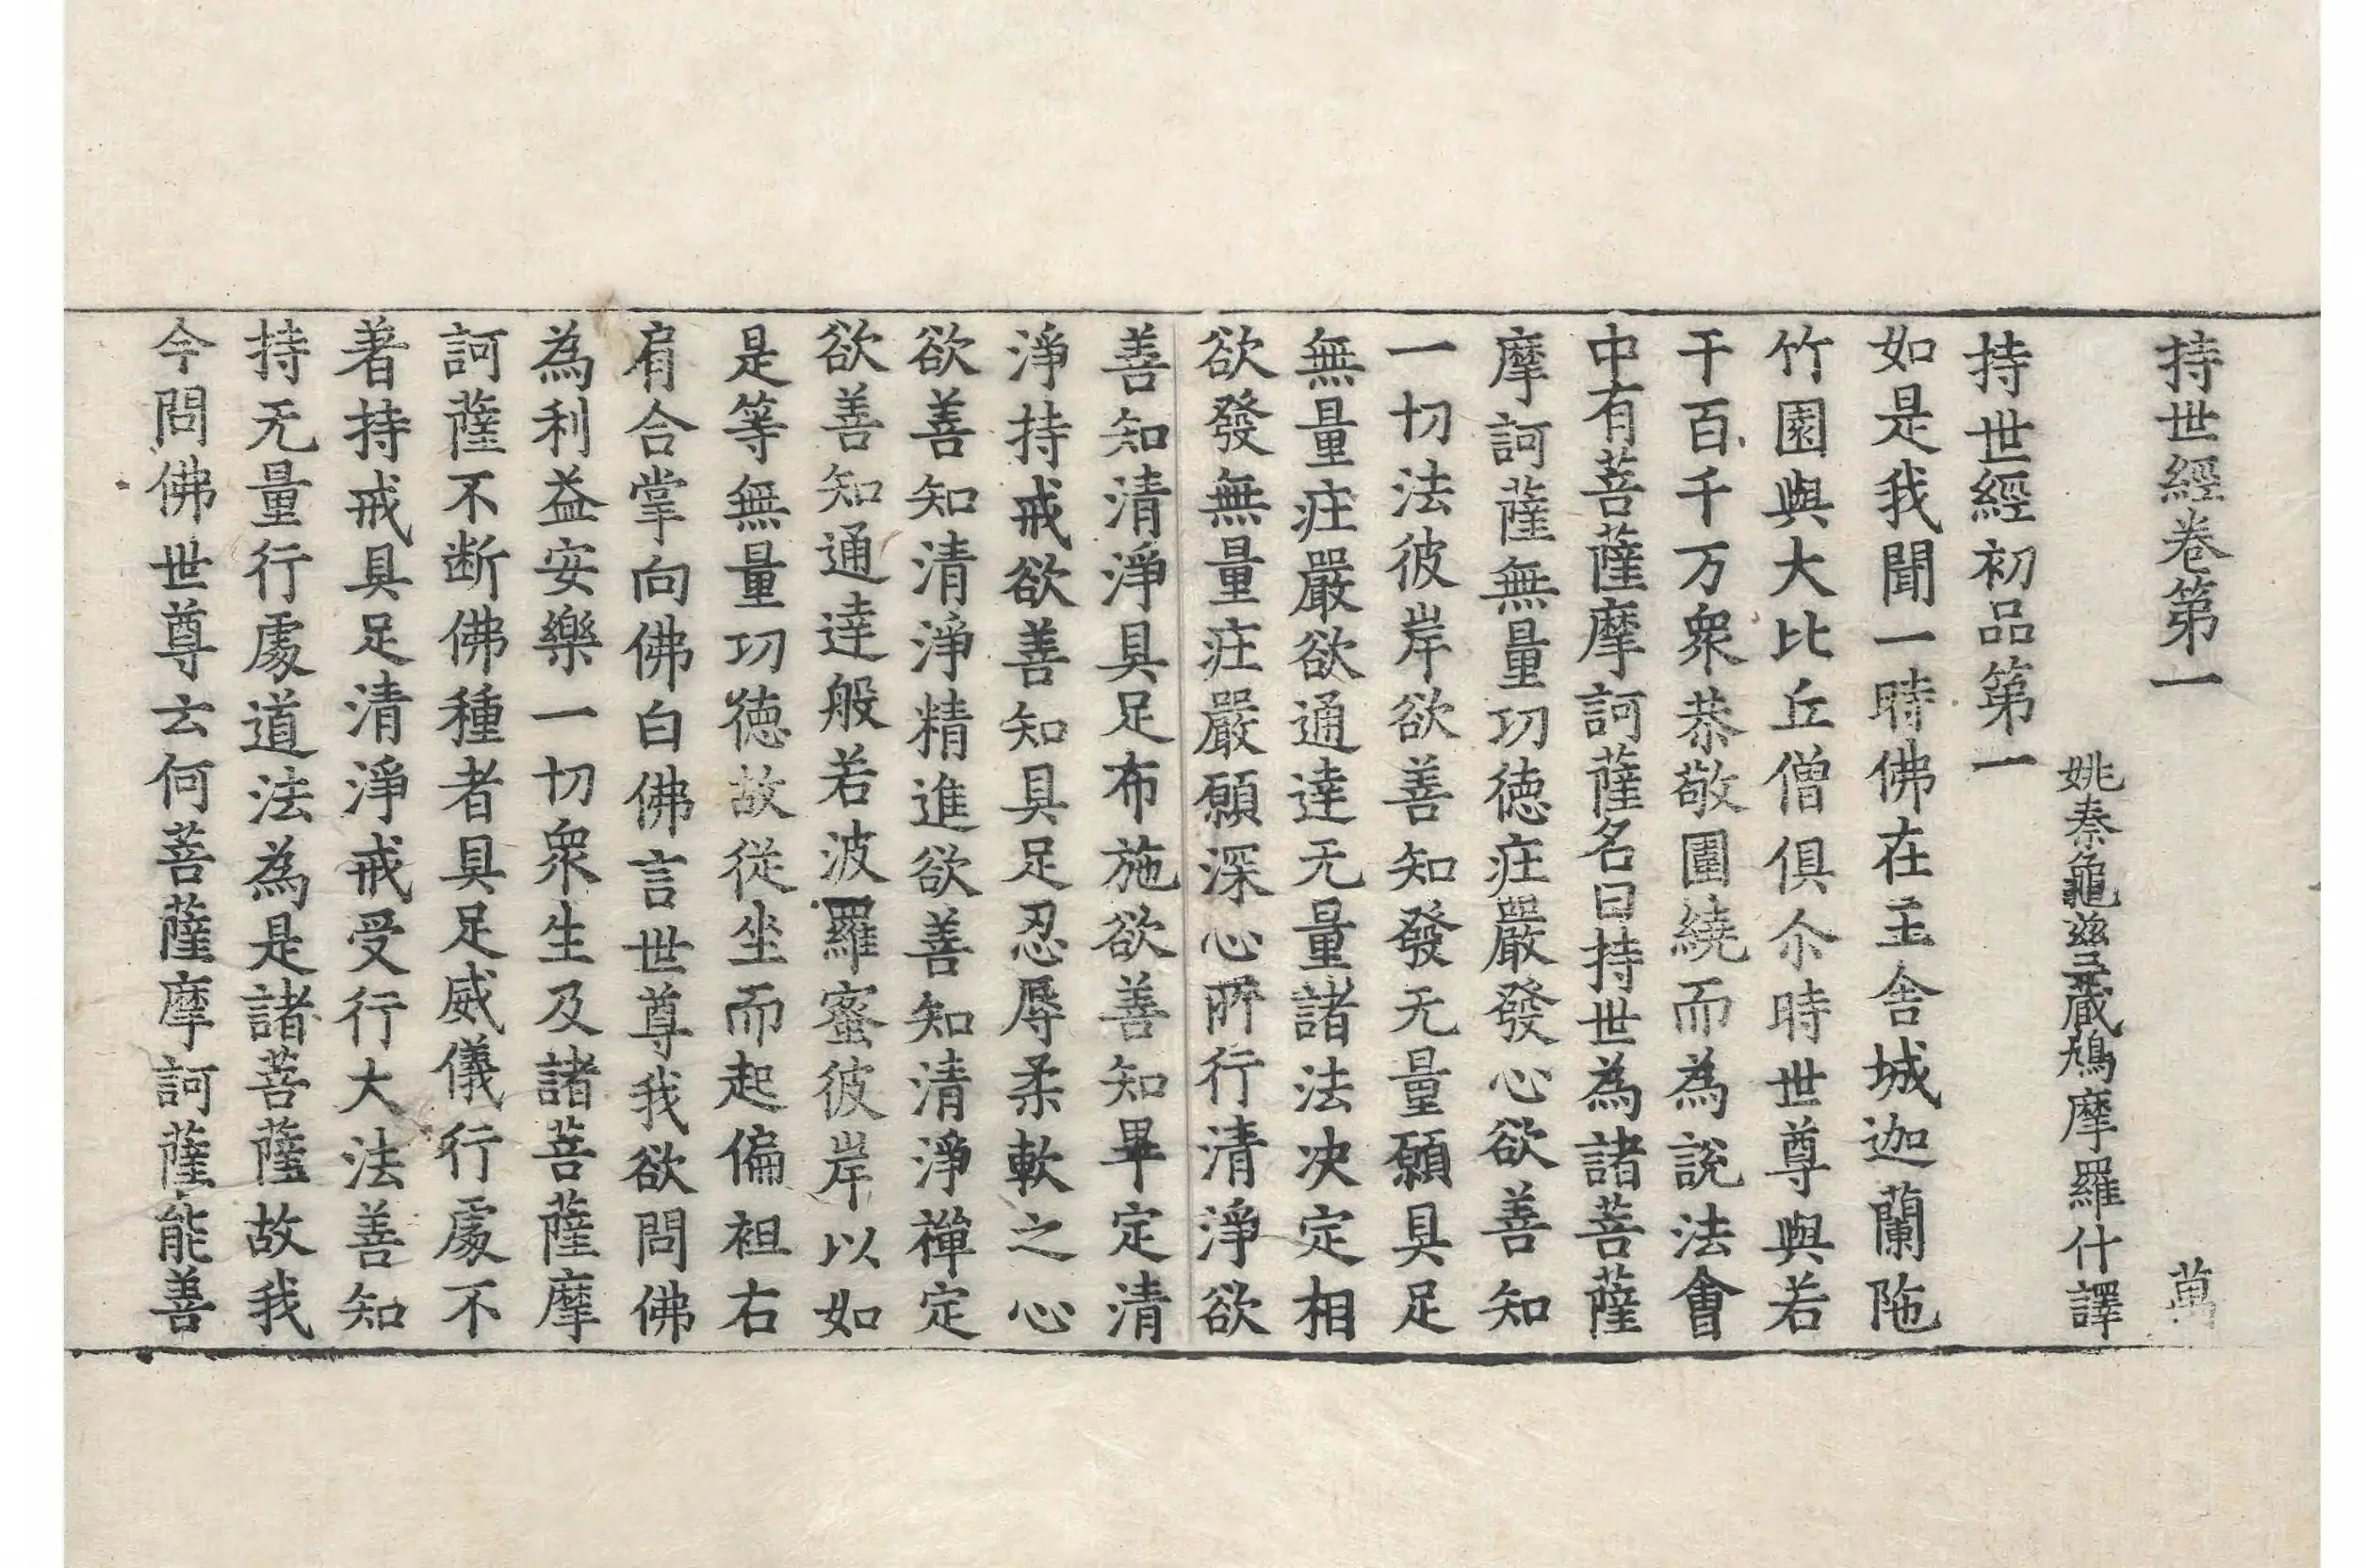 持世經卷第一 萬
姚秦龜兹三藏鳩摩羅什譯
持世經初品第一
如是我聞一時佛在王舍城迦蘭陁
竹園與大比丘僧俱尒時世尊與若
干百千万衆恭敬圍繞而為說法會
中有菩薩摩訶薩名曰持世為諸菩薩
摩訶薩無量功德庄嚴發心欲善知
一切法彼岸欲善知發无量願具足
無量庄嚴欲通達无量諸法决定相
欲發無量庄嚴願深心所行清淨欲
善知清淨具足布施欲善知畢定清
淨持戒欲善知具足忍辱柔軟之心
欲善知清淨精進欲善知清淨禪定
欲善知通達般若波羅蜜彼岸以如
是等無量功德故從坐而起偏袒右
肩合掌向佛白佛言世尊我欲問佛
為利益安樂一切衆生及諸菩薩摩
訶薩不断佛種者具足威儀行處不
著持戒具足清淨戒受行大法善知
持无量行處道法為是諸菩薩故我
今問佛世尊云何菩薩摩訶薩能善